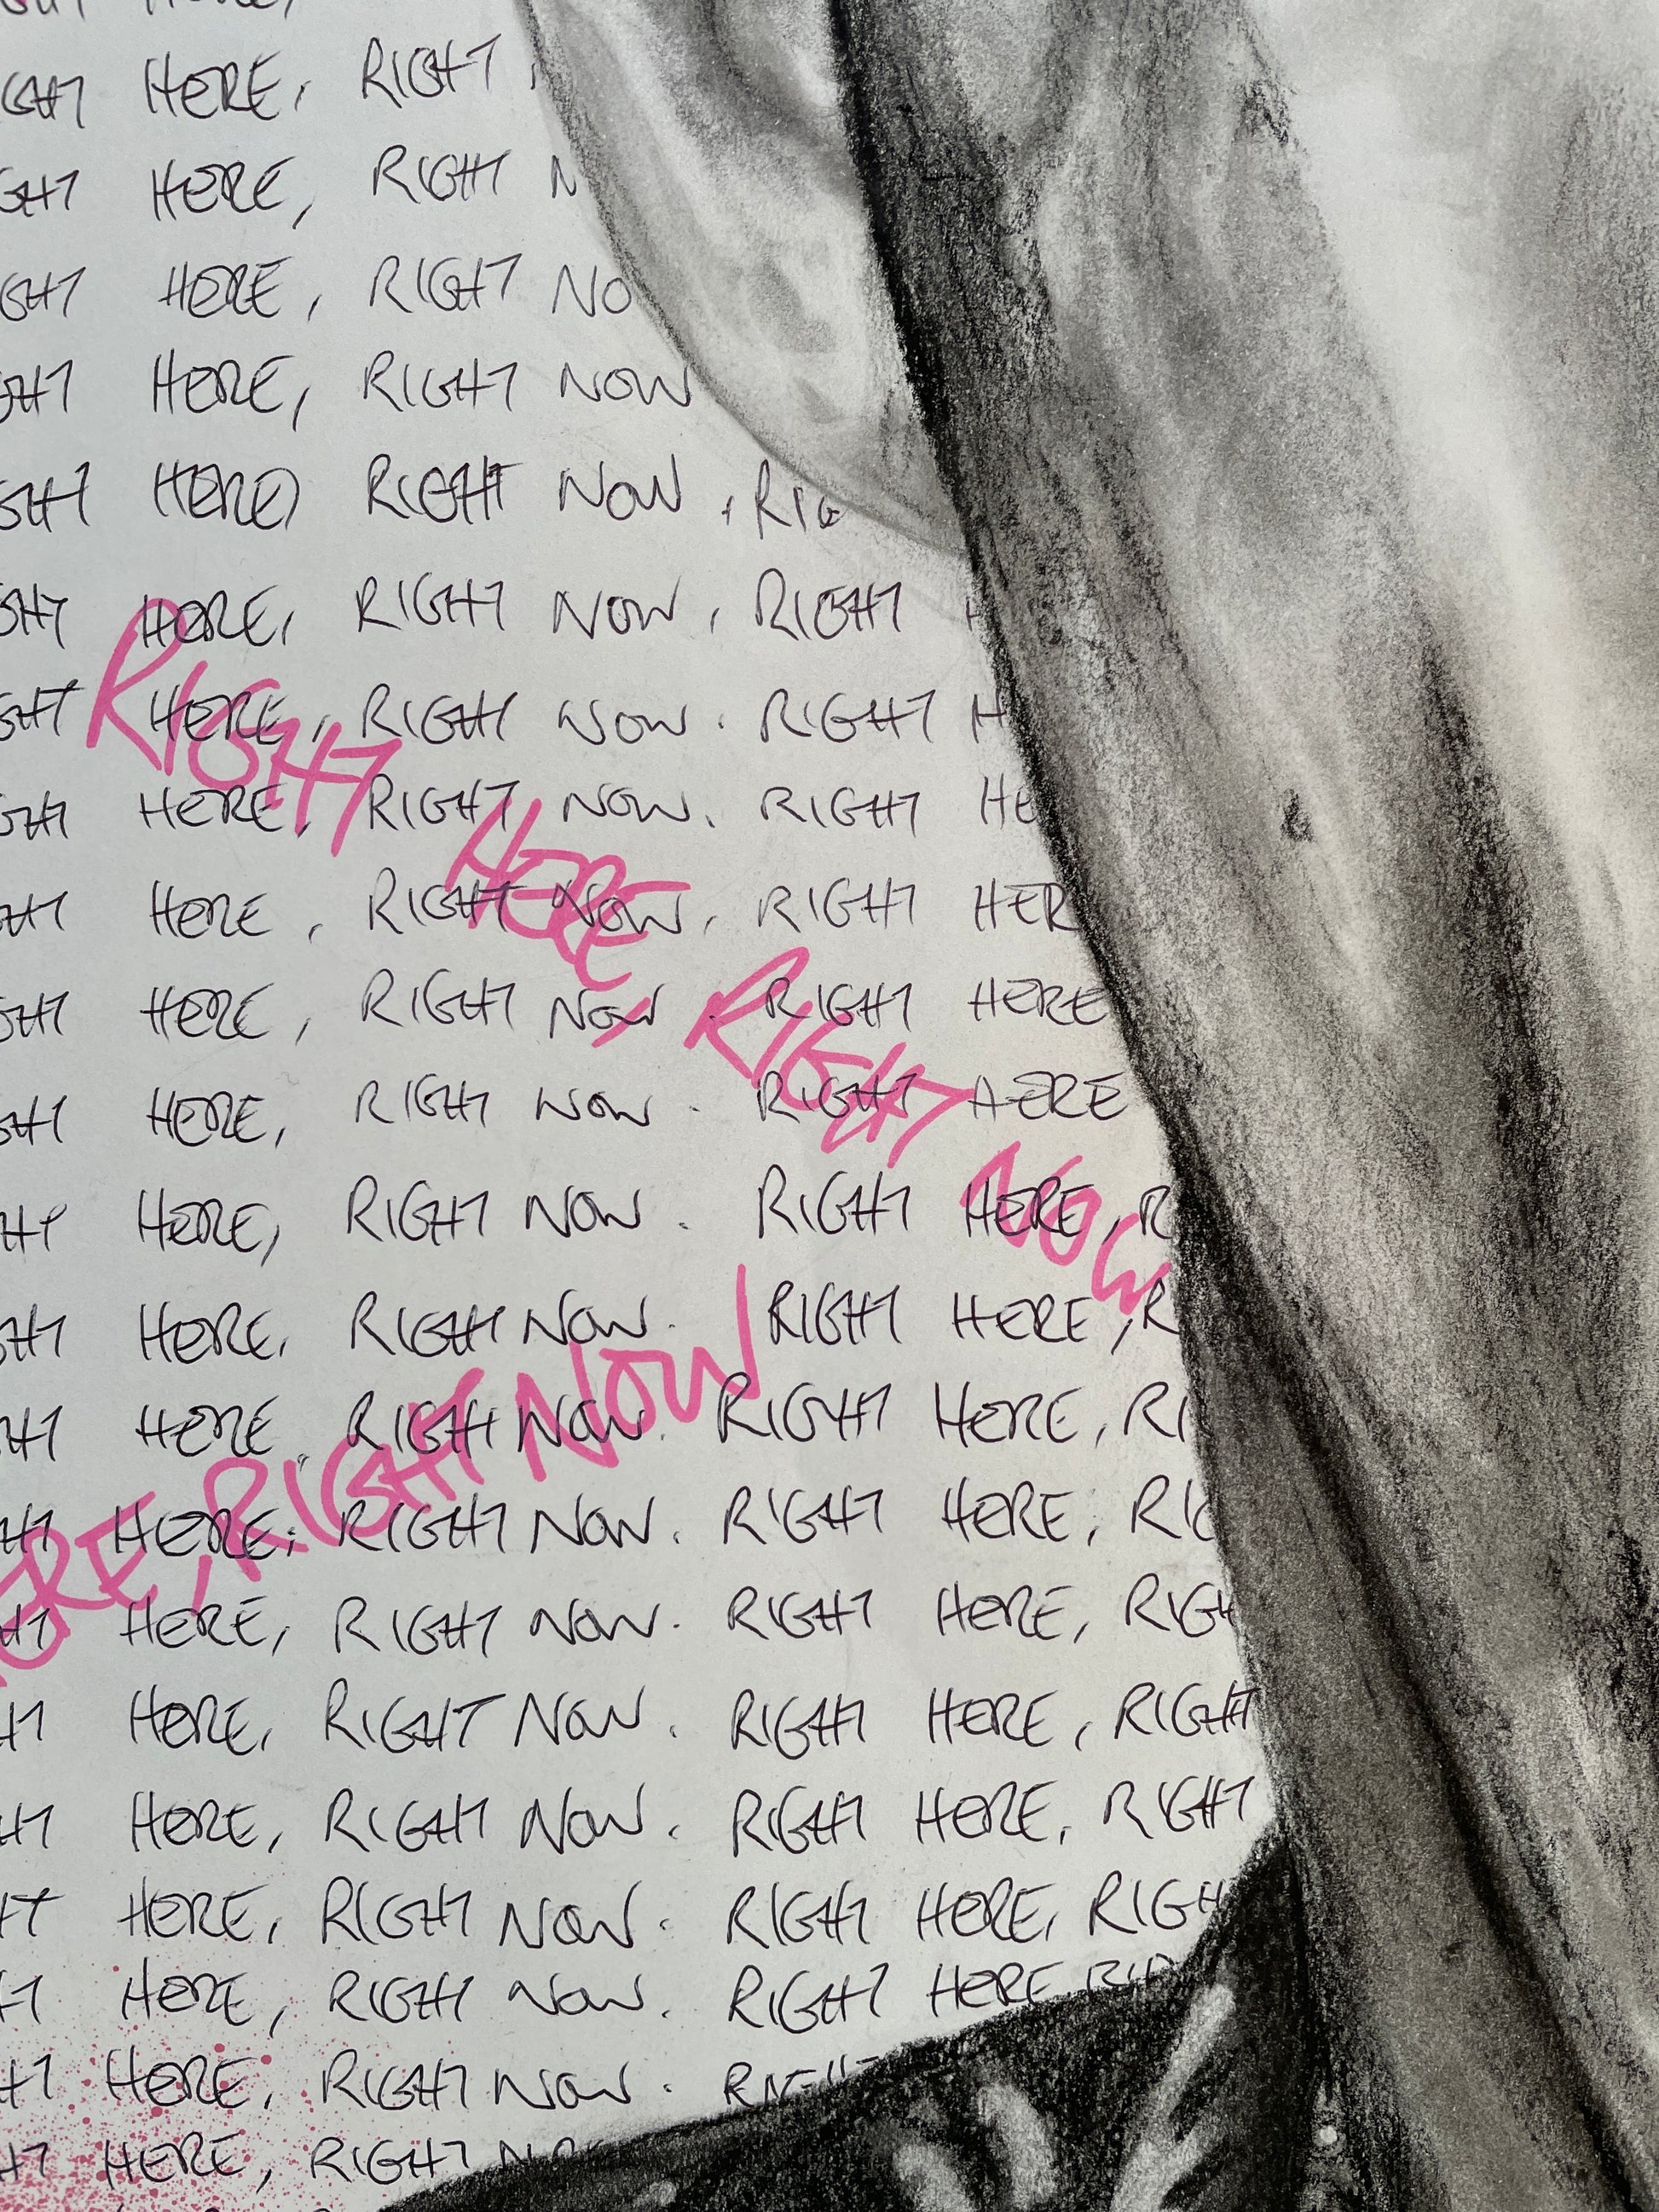 HERE,
RIGHT HERE, RIGHT
HERE, RIGHT N
HERE, RIGHT NO
HERE, RIGHT NOW
HERE, RIGHT NOW, RIG
HERE, RIGHT NOW, RIGHT H
HERE, RIGHT NOW. RIGHT H
RIGHT HERE, RIGHT NOW
HERE, RIGHT NOW. RIGHT HE
HERE, RIGHT NOW, RIGHT HER
HERE, RIGHT NOW. RIGHT HERE
HERE, RIGHT NOW. RIGHT HERE
HERE, RIGHT NOW. RIGHT HERE, R
HERE, RIGHT NOW. RIGHT HERE, R
HERE, RIGHT NOW. RIGHT HERE, RI
ERE, RIGHT NOW
HERE, RIGHT NOW. RIGHT HERE, RIG
HERE, RIGHT NOW. RIGHT HERE, RIGH
HERE, RIGHT NOW. RIGHT HERE, RIGHT
HERE, RIGHT NOW. RIGHT HERE, RIGHT
HERE, RIGHT NOW. RIGHT HERE, RIGH
HERE, RIGHT NOW. RIGHT HERE
HERE, RIGHT NOW. RIGHT
HERE, RIGHT NO